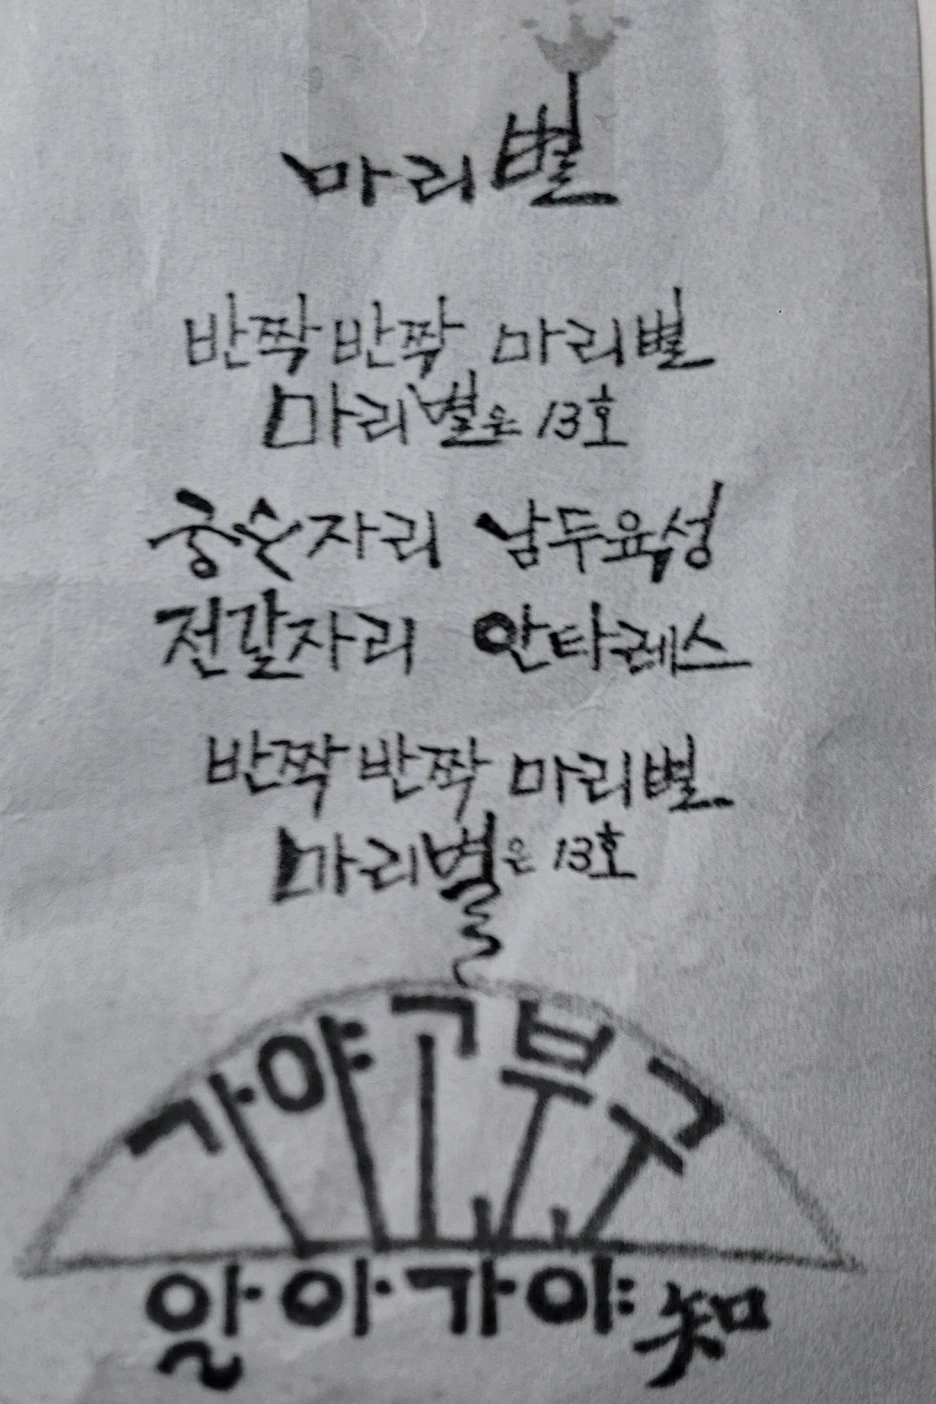 마리별
반짝반짝 마리별
마리별은 13호
궁숫자리 남두육성
전갈자리 안타레스
반짝반짝 마리별
마리별은 13호
가야고부구
알아가야知